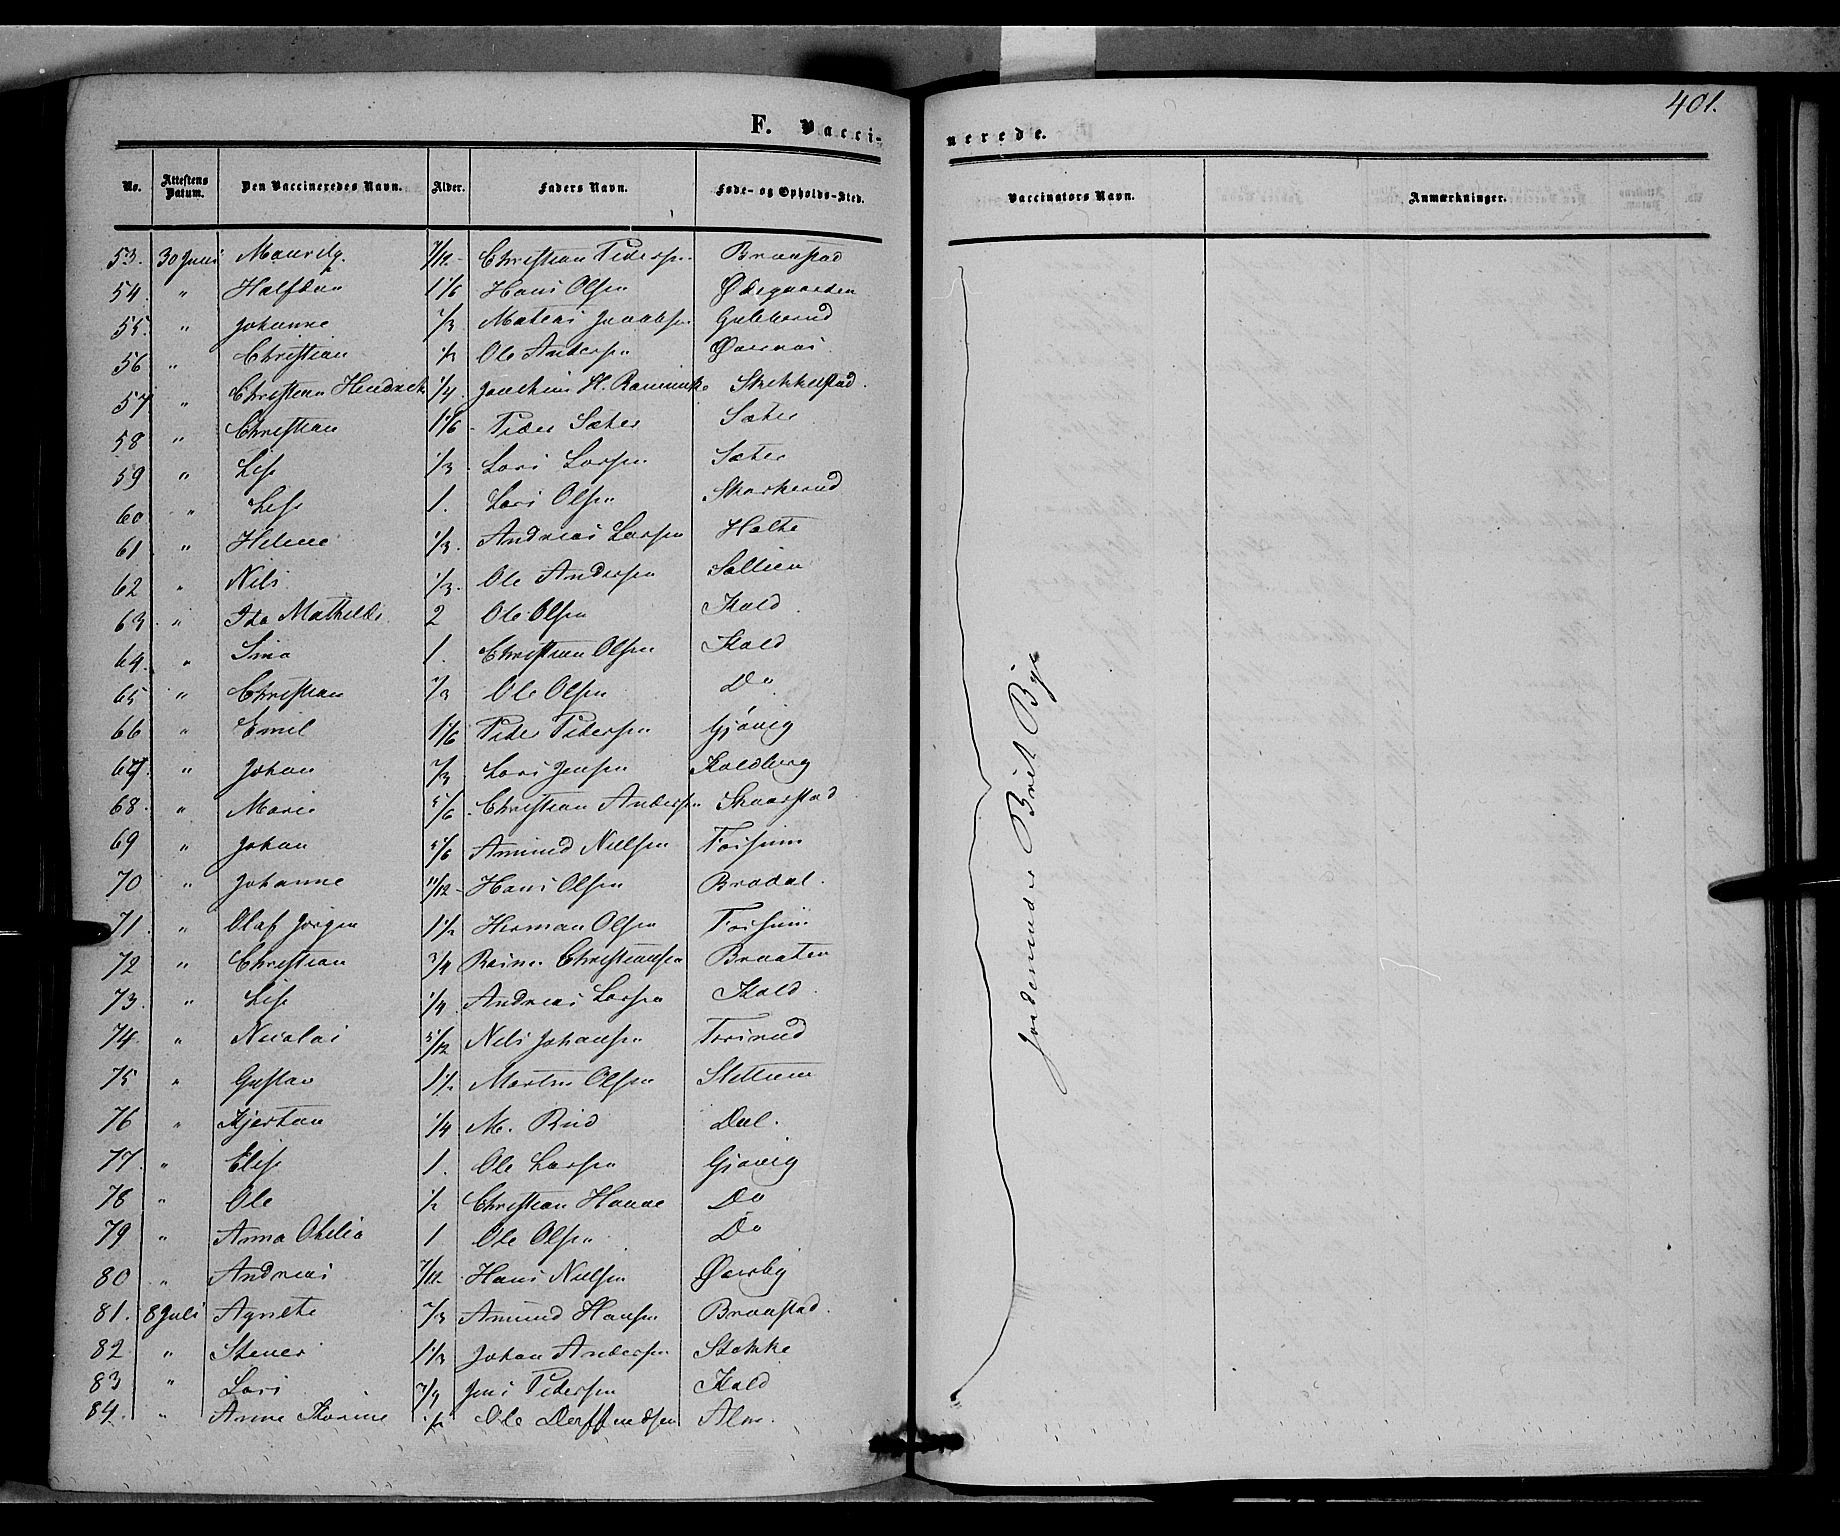 401.
F. Vacci-
nerede.
No. Attestens Datum. Den Vaccineredes Navn. Alder. Faders Navn. Føde- og Opholds-Sted.
Vaccinators Navn. Anmærkninger.
53. 30 Juni 7/12 Christian Pedersen Braastad
54. " Halfdan 1 1/6 Hans Olsen Ødegaarden
55. " Johanne 2/3 Mateas Jacobsen
56 " Christian 1/2 Ole Andersen
57 " Christian Hendrick 1/4. Joachim H. Skikkelstad.
58 " Christian 1 1/6 Peder Sæter Sæter
59 " Lise 1/3 Lars Larsen Sæter
60 " Lise 1. Lars Olsen
61 " Helene 1/3. Andreas Larsen Holte
62 " Nils 1/3. Ole Andersen
63. " Ida Mathilde. 2 Ole Olsen Kald.
64. " Sina 1. Christian Olsen Kald
65 " Christian 2/3 Ole Olsen Do.
66 " Emil 1 1/6 Peder Pedersen Gjøvig
67. " Johan 2/3 Lars Jensen Kaldberg
68. " Marie 5/6. Christian Andersen Skaarstad
69 " Johan 5/6 Amund Nielsen
70 " Johanne 11/12 Hans Olsen Bradal.
71. " Olaf Jørgen 1 1/2 Herman Olsen
72 " Christian 3/4 Christiansen Braaten
73. " Lise 1/4. Andreas Larsen Kald.
74. " Nicolai 5/12 Nils Johansen
75 " Gustav 1 1/2 Martin Olsen
76 " Kjerstan 1/4 M. Rud Dal.
77. " Elise 1. Ole Larsen Gjøvig
78 " Ole 1/2 Christian Do
79 " Anna Otilia 1 Ole Olsen Do
80 " Andreas 7/12 Hans Nielsen Øverby
81. 8 Juli Agnethe 2/3 Amund Hansen Braastad.
82 " Stener 1 1/3 Johan Andersen Stokke
83 " Lars Jens Pedersen Kald
84. " Anne Karine 1/2 Ole Alm.
Jordemoder Brit Bye